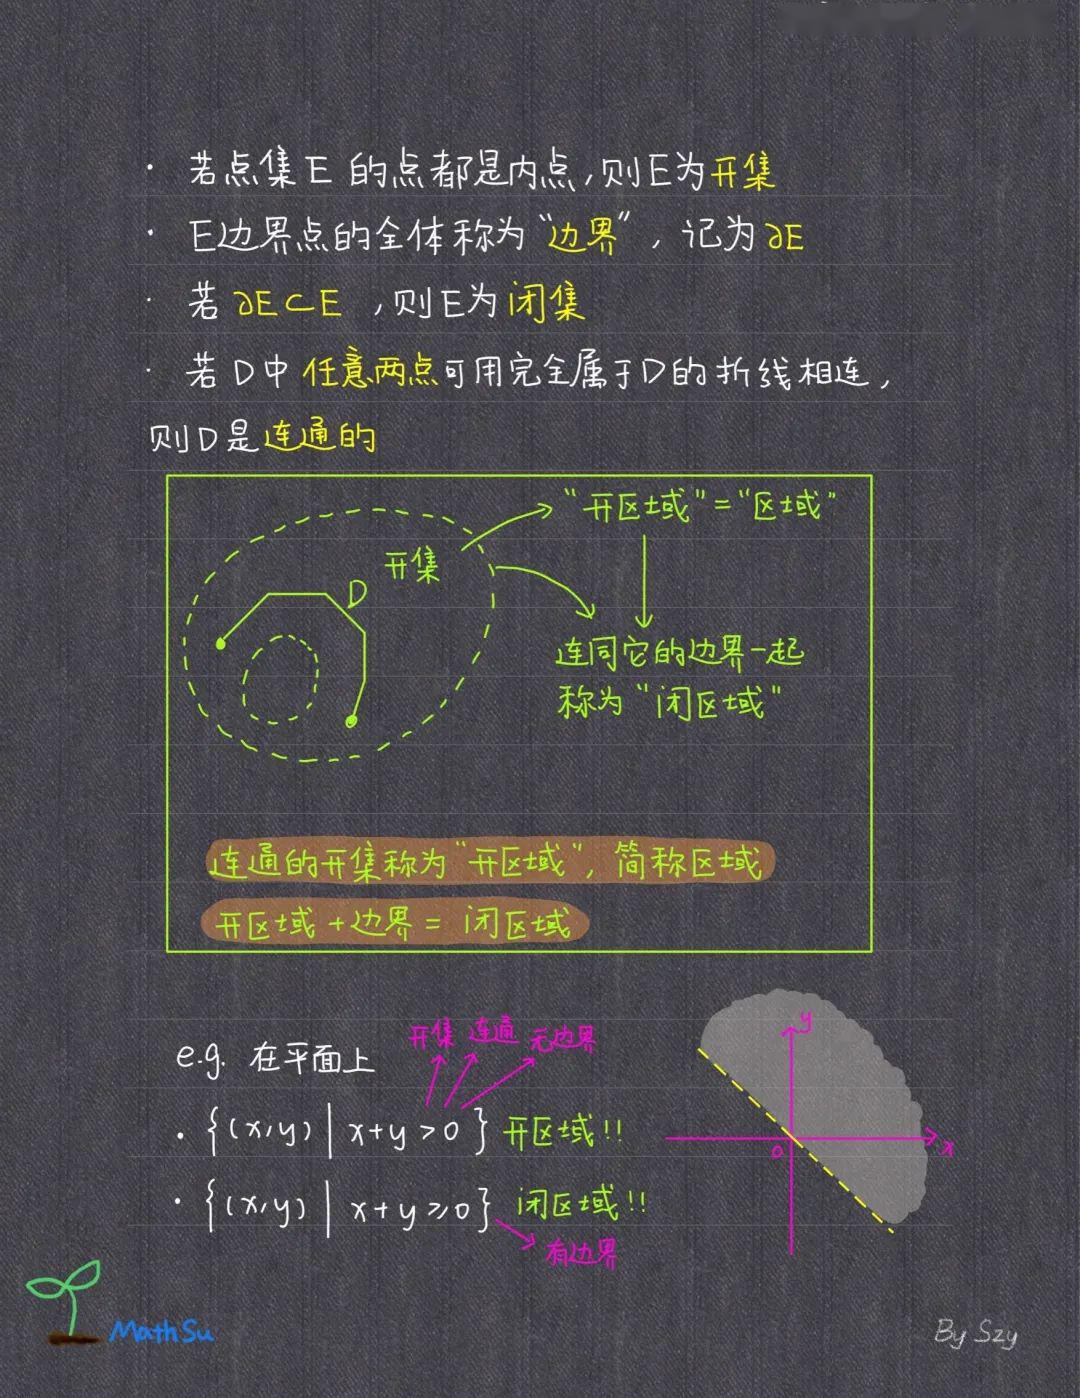 · 若点集E 的点都是内点,则E为开集
· E边界点的全体称为“边界”, 记为∂E
· 若 ∂E⊂E ,则E为闭集
· 若D中 任意两点可用完全属于D的折线相连,
则D是连通的
“开区域”=“区域”
开集
D
连同它的边界一起
称为“闭区域”
连通的开集称为“开区域”, 简称区域
开区域 + 边界 = 闭区域
开集 连通 无边界
e.g. 在平面上
· {(x,y) | x+y>0 } 开区域!!
· {(x,y) | x+y≥0} 闭区域!!
有边界
y
0
x
MathSu
By Szy